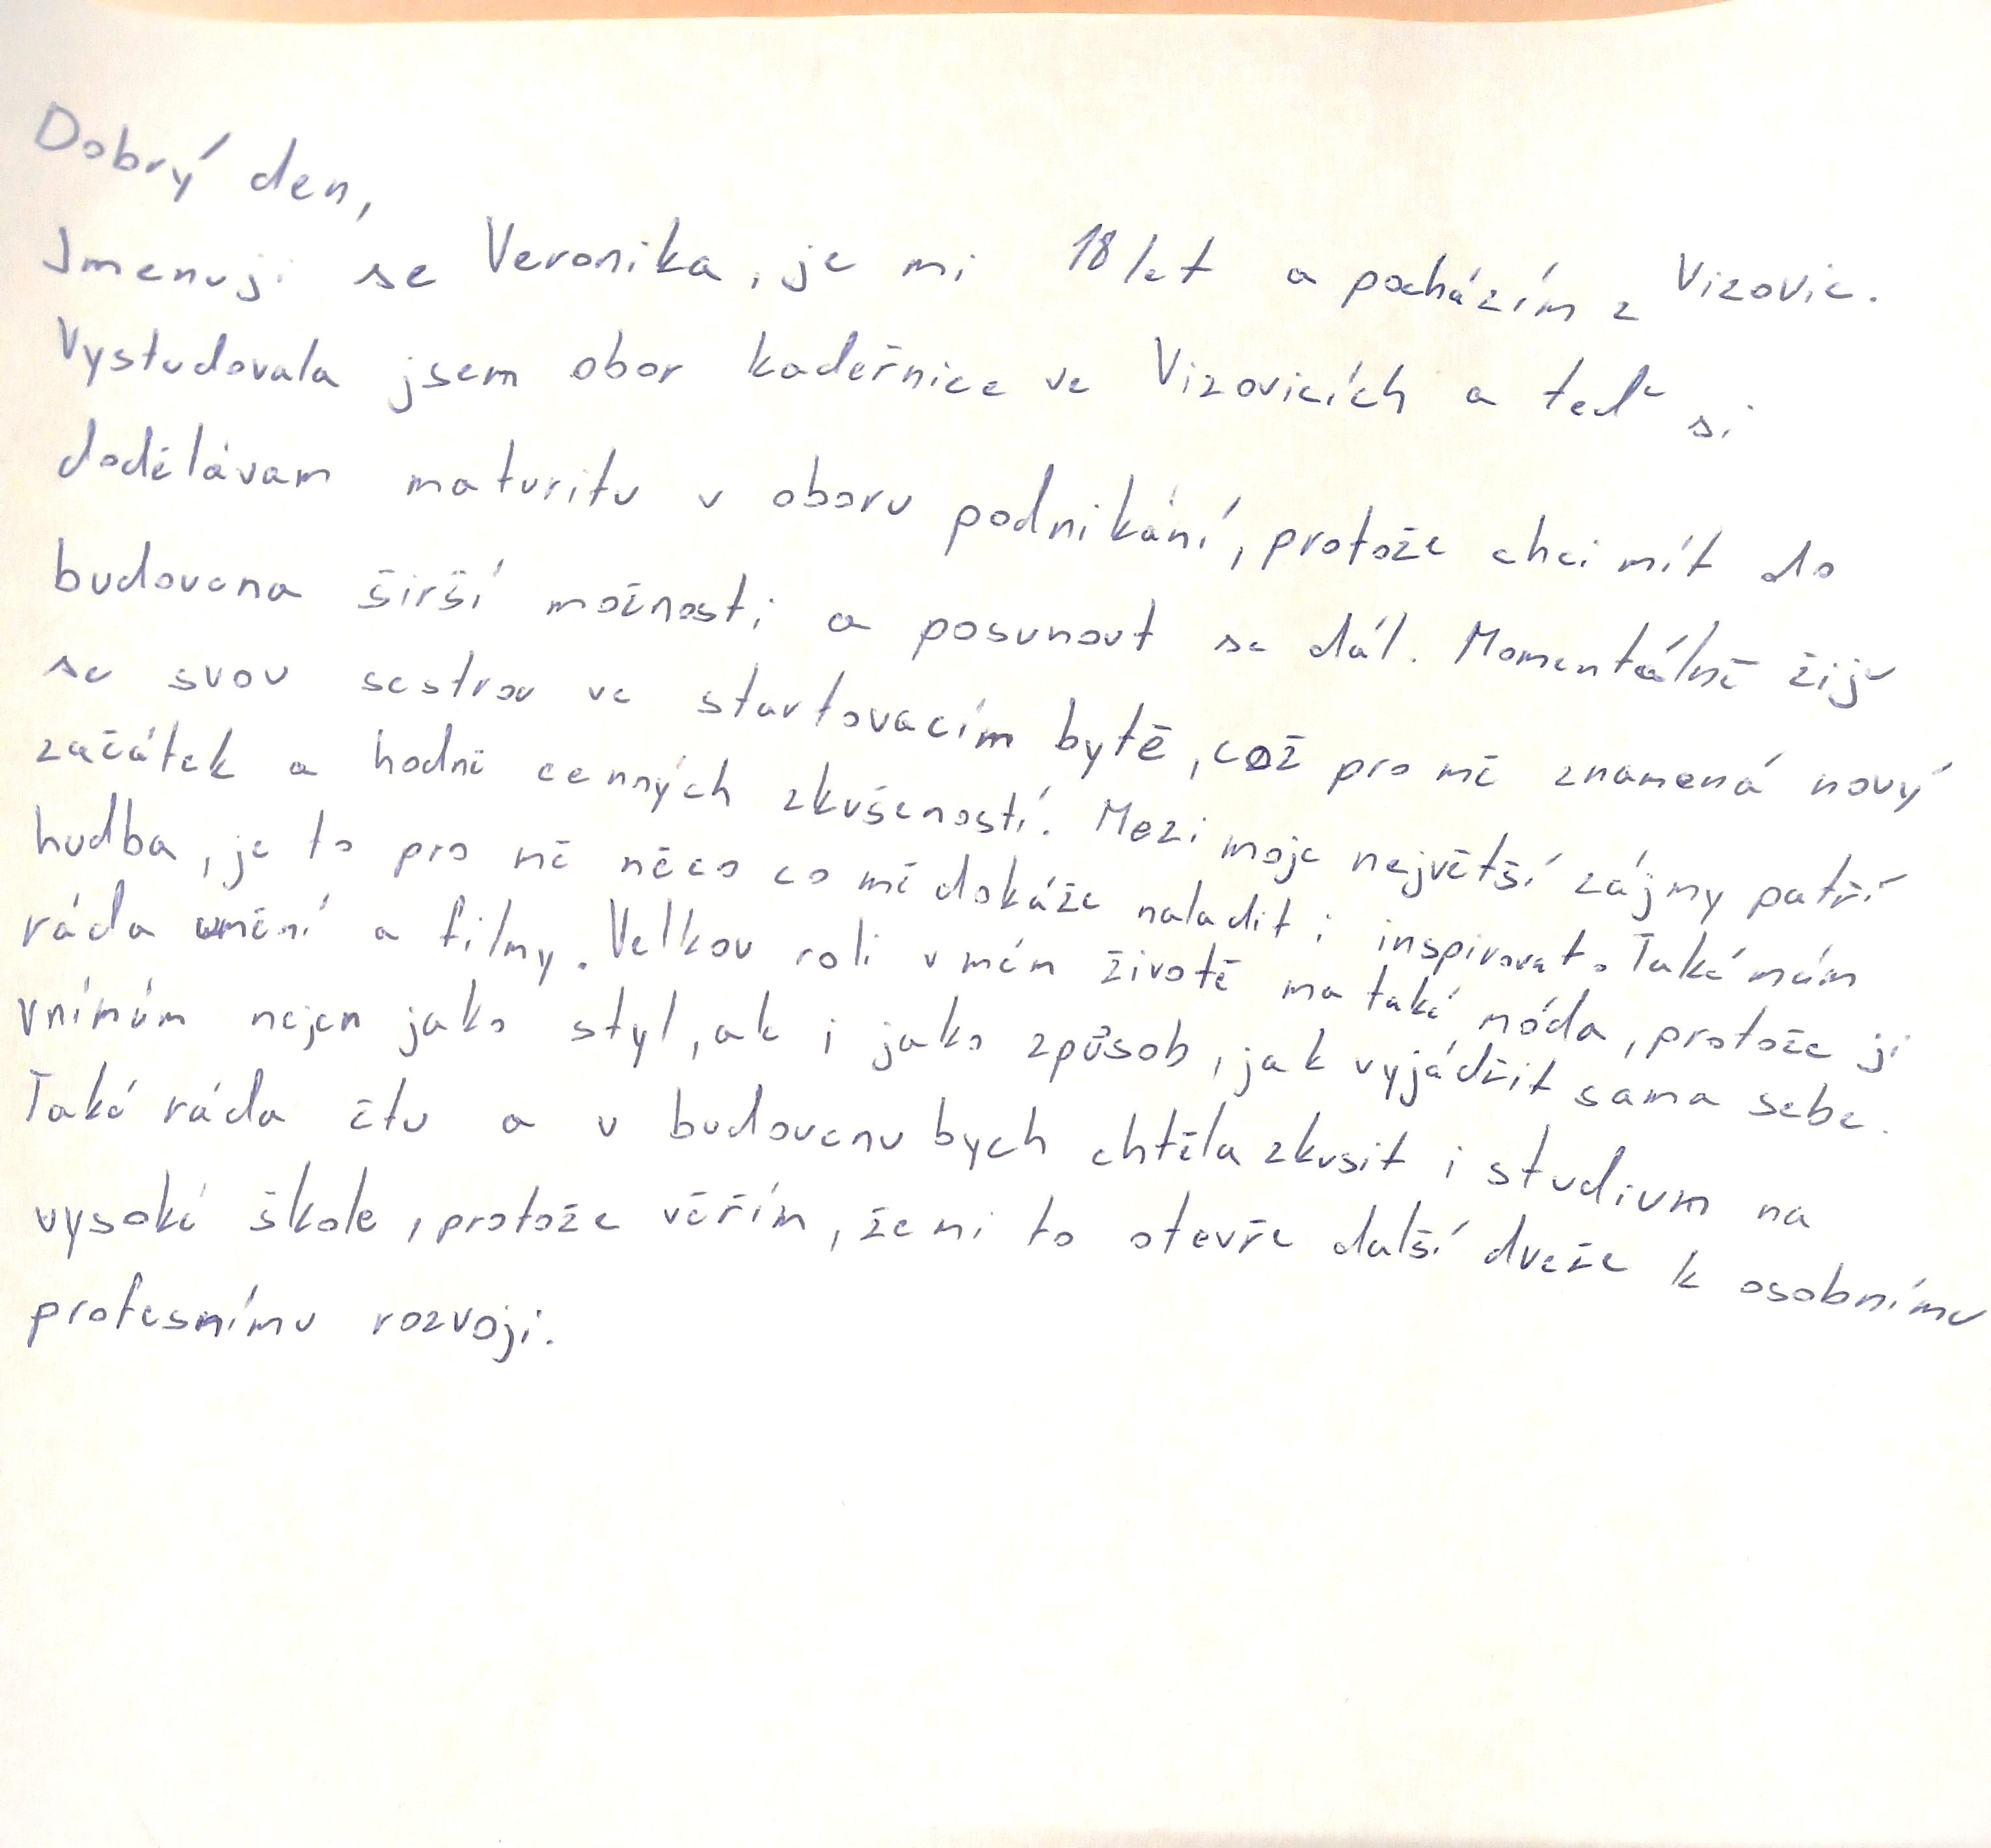 Dobrý den,
Jmenuji se Veronika, je mi 18 let a pocházím z Vizovic.
Vystudovala jsem obor kadeřnice ve Vizovicích a teď si
dodělávam maturitu v oboru podnikání, protože chci mít do
budoucna širší možnosti a posunout se dál. Momentálně žiju
se svou sestrou ve startovacím bytě, což pro mě znamená nový
začátek a hodně cenných zkušeností. Mezi moje největší zájmy patří
hudba, je to pro mě něco co mě dokáže naladit i inspirovat. Také mám
ráda umění a filmy. Velkou roli v mém životě ma také móda, protože ji
vnímám nejen jako styl, ale i jako způsob, jak vyjádřit sama sebe.
Také ráda čtu a v budoucnu bych chtěla zkusit i studium na
vysoké škole, protože věřím, že mi to otevře další dveře k osobnímu
profesnímu rozvoji.